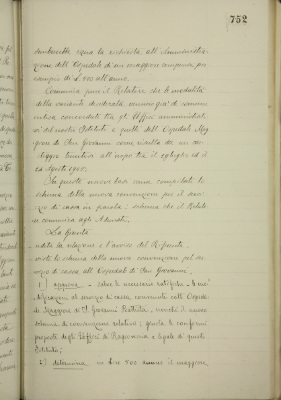 752
sembrerebbe equa la risposta all'Amministra-
zione dell'Ospedale d'un maggiore compenso per
esempio di £ 500 all'anno.
Comunica pure il Relatore che le modalità
della variante desiderata
concordate tra gli Uffici amministrati-
vi del nostro Istituto e quelli dell'Ospedale Mag-
giore di San Giovanni come risulta da un car-
teggio tenutosi all'uopo tra il luglio ed il
24 Agosto 1905.
Su queste nuove basi venne compilato lo
schema della nuova convenzione pel servi-
zio di cassa in parola: schema che il Relato-
re comunica agli Adunati.
La Giunta
udita la relazione e l'avviso del Riferente,
visto lo schema della nuova convenzione pel ser-
vizio di cassa all'Ospedale di San Giovanni,
1) approva - salvo le necessarie ratifiche - le mo-
dificazioni al servizio di cassa, convenute coll'Ospeda-
le Maggiore di S. Giovanni Battista, nonché il nuovo
schema di convenzione relativo; giusta le conformi
proposte degli Uffici di Ragioneria e legale di questo
Istituto;
2) determina in lire 500 annue il maggiore